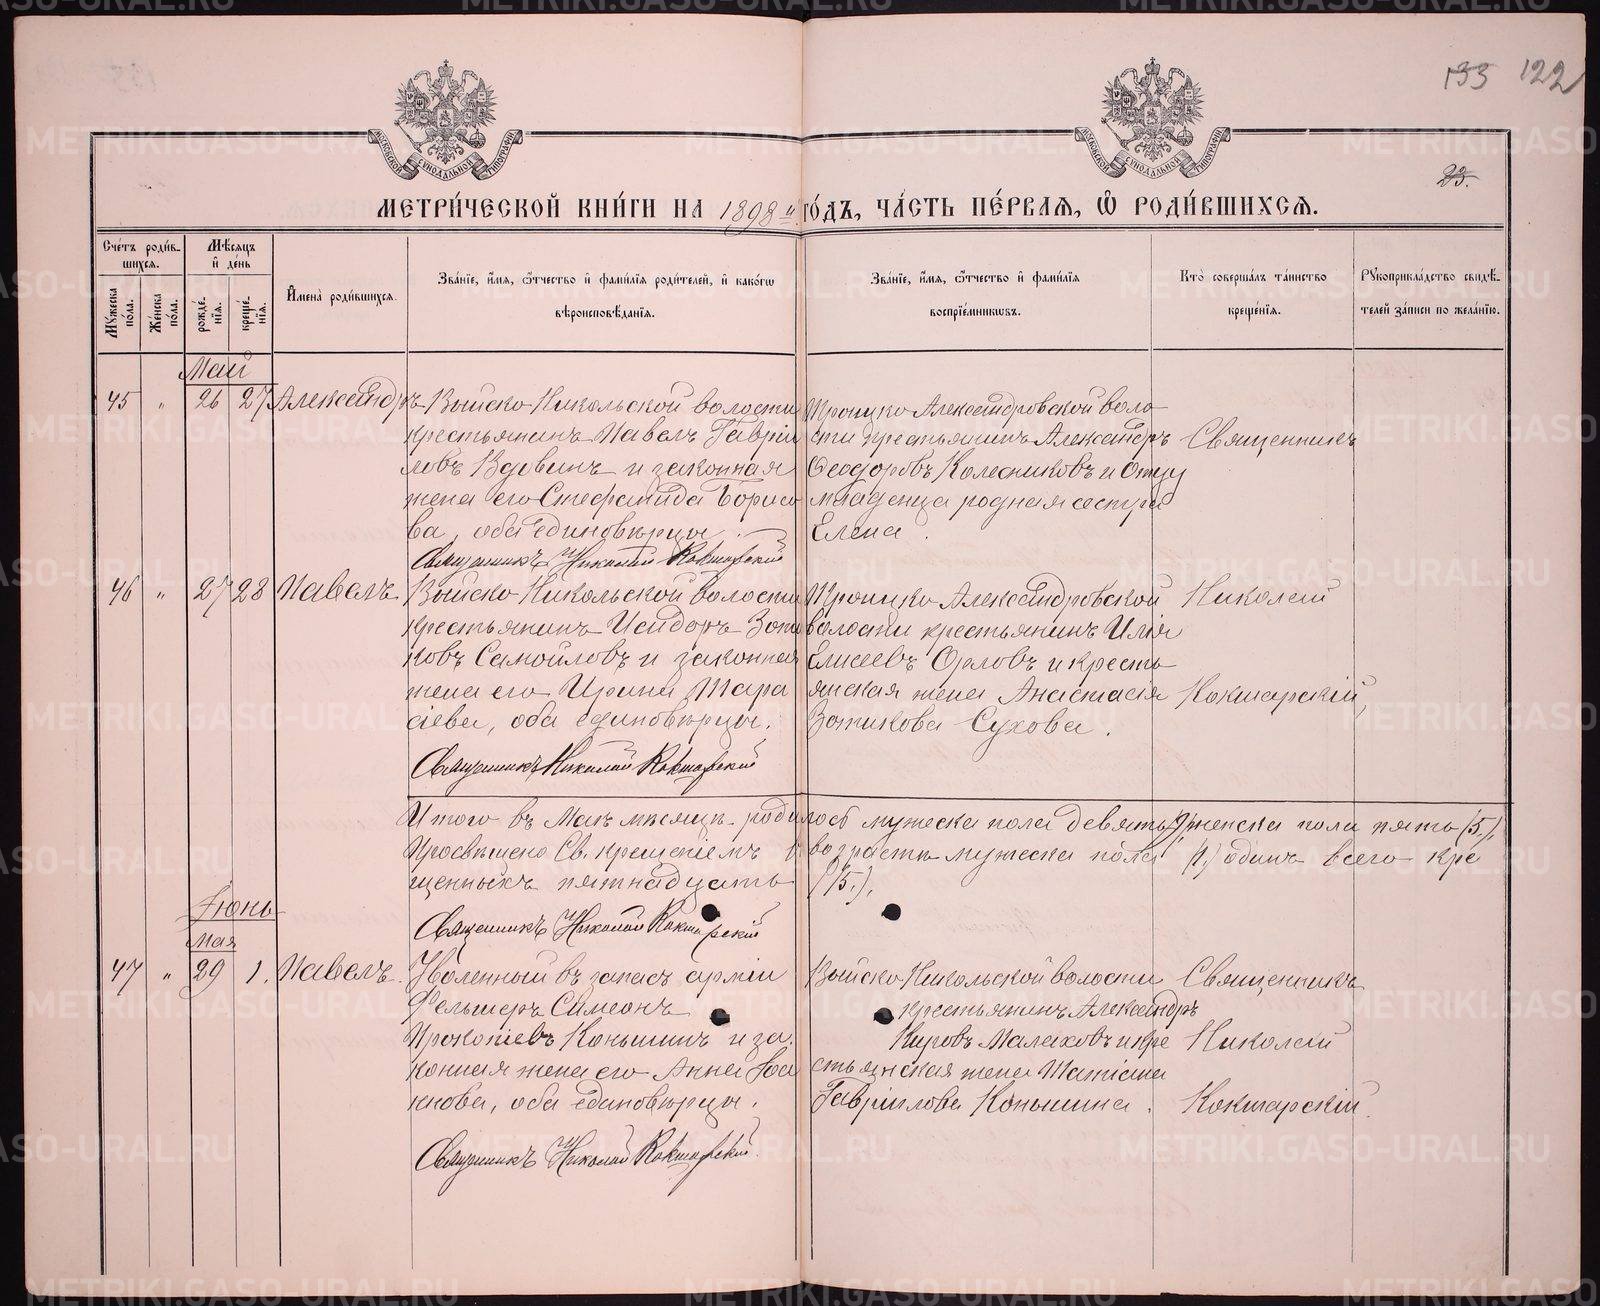 133 122
23.
МОСКОВСКОЙ СѴНОДАЛЬНОЙ ТИПОГРАФІИ
МОСКОВСКОЙ СѴНОДАЛЬНОЙ ТИПОГРАФІИ
МЕТРИ́ЧЕСКОЙ КНИ́ГИ НА 1898й ГО́ДЪ, ЧА́СТЬ ПЕ́РВАѦ, Ѽ РОДИ́ВШИХСѦ.
Сче́тъ роди́в-
шихсѧ.
Мꙋ́жеска по́ла.
Же́нска по́ла.
Мѣ́сѧцъ
и҆ де́нь
рожде́-
нїѧ.
креще́-
нїѧ.
И҆мена̀ роди́вшихсѧ.
Зва́нїе, и҆́мѧ, ѻ҆́тчество и҆ фами́лїѧ роди́телей, и҆ како́гѡ
вѣроисповѣ́данїѧ.
Зва́нїе, и҆́мѧ, ѻ҆́тчество и҆ фами́лїѧ
воспрїе́мникѡвъ.
Кто̀ соверша́лъ та́инство
креще́нїѧ.
Рꙋкоприкла́дство свидѣ́-
телей за́писи по жела́нїю.
Май
45 " 26 27 Александръ
Выйско-Никольской волости
крестьянинъ Павелъ Гаврiи
ловъ Вдовинъ и законная
жена его Стефанида Борисо
ва, оба единовѣрцы.
Священникъ Николай Кокшарскій
Троицко Александровской воло
сти крестьянинъ Александръ
Ѳеодоровъ Колесниковъ и отцу
младенца родная сестра
Елена.
Священникъ
46 " 27 28 Павелъ
Выйско-Никольской волости
крестьянинъ Исидоръ Зоти
ковъ Самойловъ и законная
жена его Ирина Тара
сіева, оба единовѣрцы.
Священникъ Николай Кокшарскій
Троицко Александровской
волости крестьянинъ Илія
Елисеевъ Орловъ и кресть
янская жена Анастасія
Зотикова Сухова.
Николай
Кокшарскій,
Итого въ Маѣ мѣсяцѣ родилось мужеска пола девять, женска пола пять (5.),
Просвѣщено Св. крещеніемъ въ возрастѣ мужеска пола (1.) одинъ всего кре
щенныхъ пятнадцать (15.).
Священникъ Николай Кокшарскій
Іюнь
мая
47 " 29 1. Павелъ.
Уволенный въ запасъ арміи
Фельшеръ Симеонъ
Прокопіевъ Коньшинъ и за.
конная жена его Анна Іоа
кнова, оба единовѣрцы.
Священникъ Николай Кокшарскій
Выйско-Никольской волости
крестьянинъ Александръ
Кировъ Малаховъ и кре
стьянская жена Татіана
Гавріилова Коньшина.
Священникъ
Николай
Кокшарскій.
METRIKI.GASO-URAL.RU